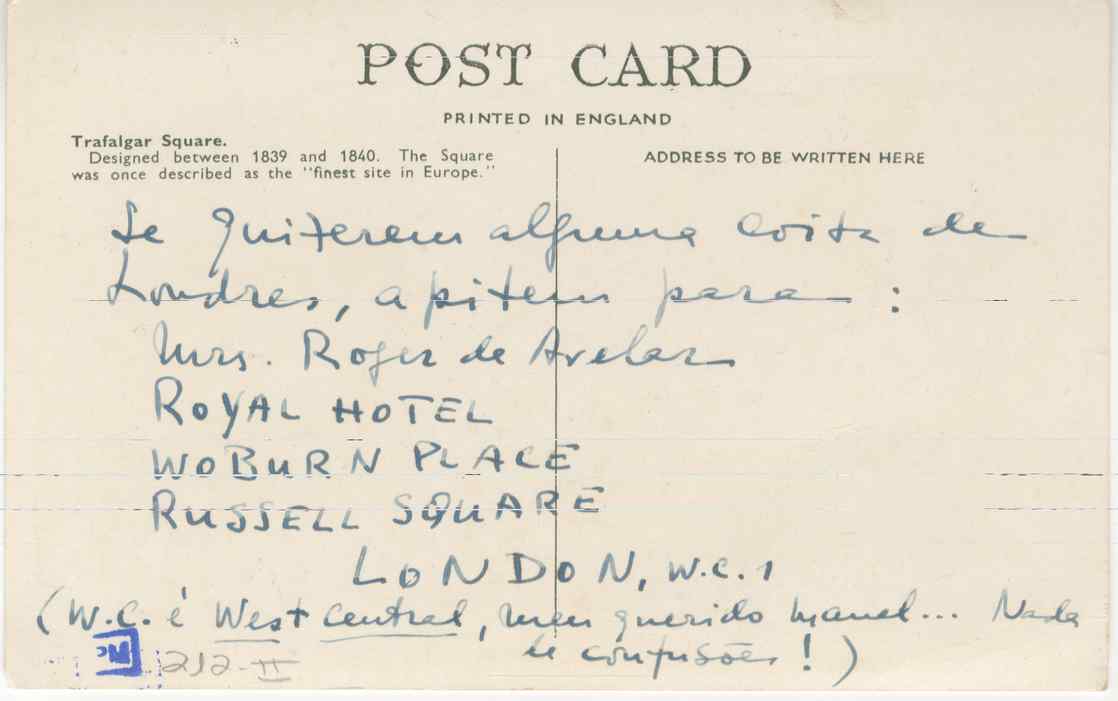 POST CARD
PRINTED IN ENGLAND
Trafalgar Square.
Designed between 1839 and 1840. The Square
was once described as the "finest site in Europe."
ADDRESS TO BE WRITTEN HERE
Se quiserem alguma coisa de
Londres, apitem para :
Mrs. Roger de Avelar
ROYAL HOTEL
WOBURN PLACE
RUSSELL SQUARE
LONDON, W.C.1
(W.C. é West Central, meu querido Manel... Nada
de confusões!)
212-II